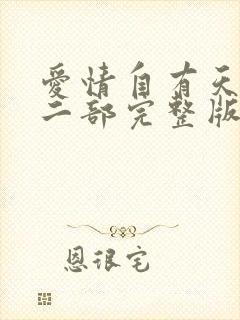 愛情自有天
二部完整版
恩很宅